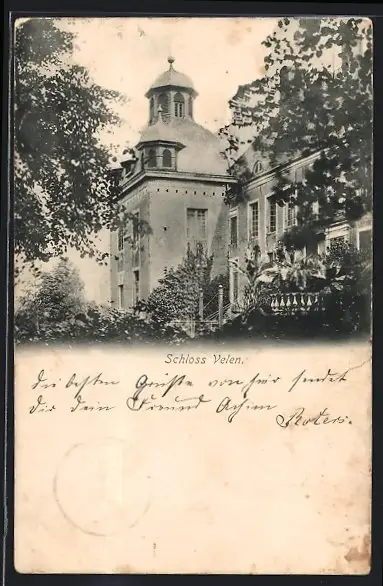 Schloss Velen.
die besten Grüße von hier sendet
Dir dein Freund Achim
Roters.